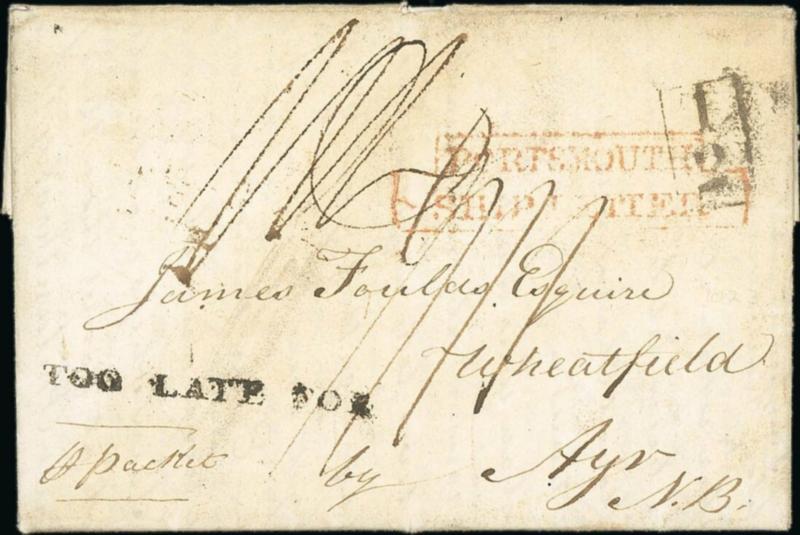 PORTSMOUTH
SHIP LETTER
James Foulds Esquire
Wheatfield
TOO LATE FOR
packet
by Ayr
N.B.